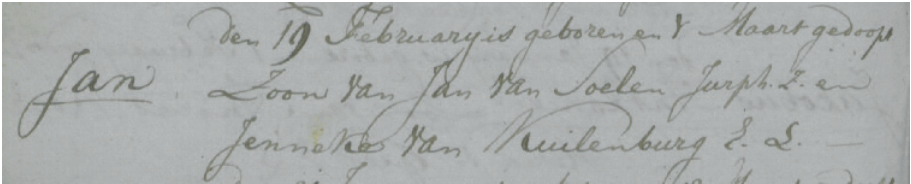 den 19 February is geboren en Maart gedoopt
Jan
Zoon van Jan van Soelen Jurph. Z. en
Jenneke van Kuilenburg E. L.